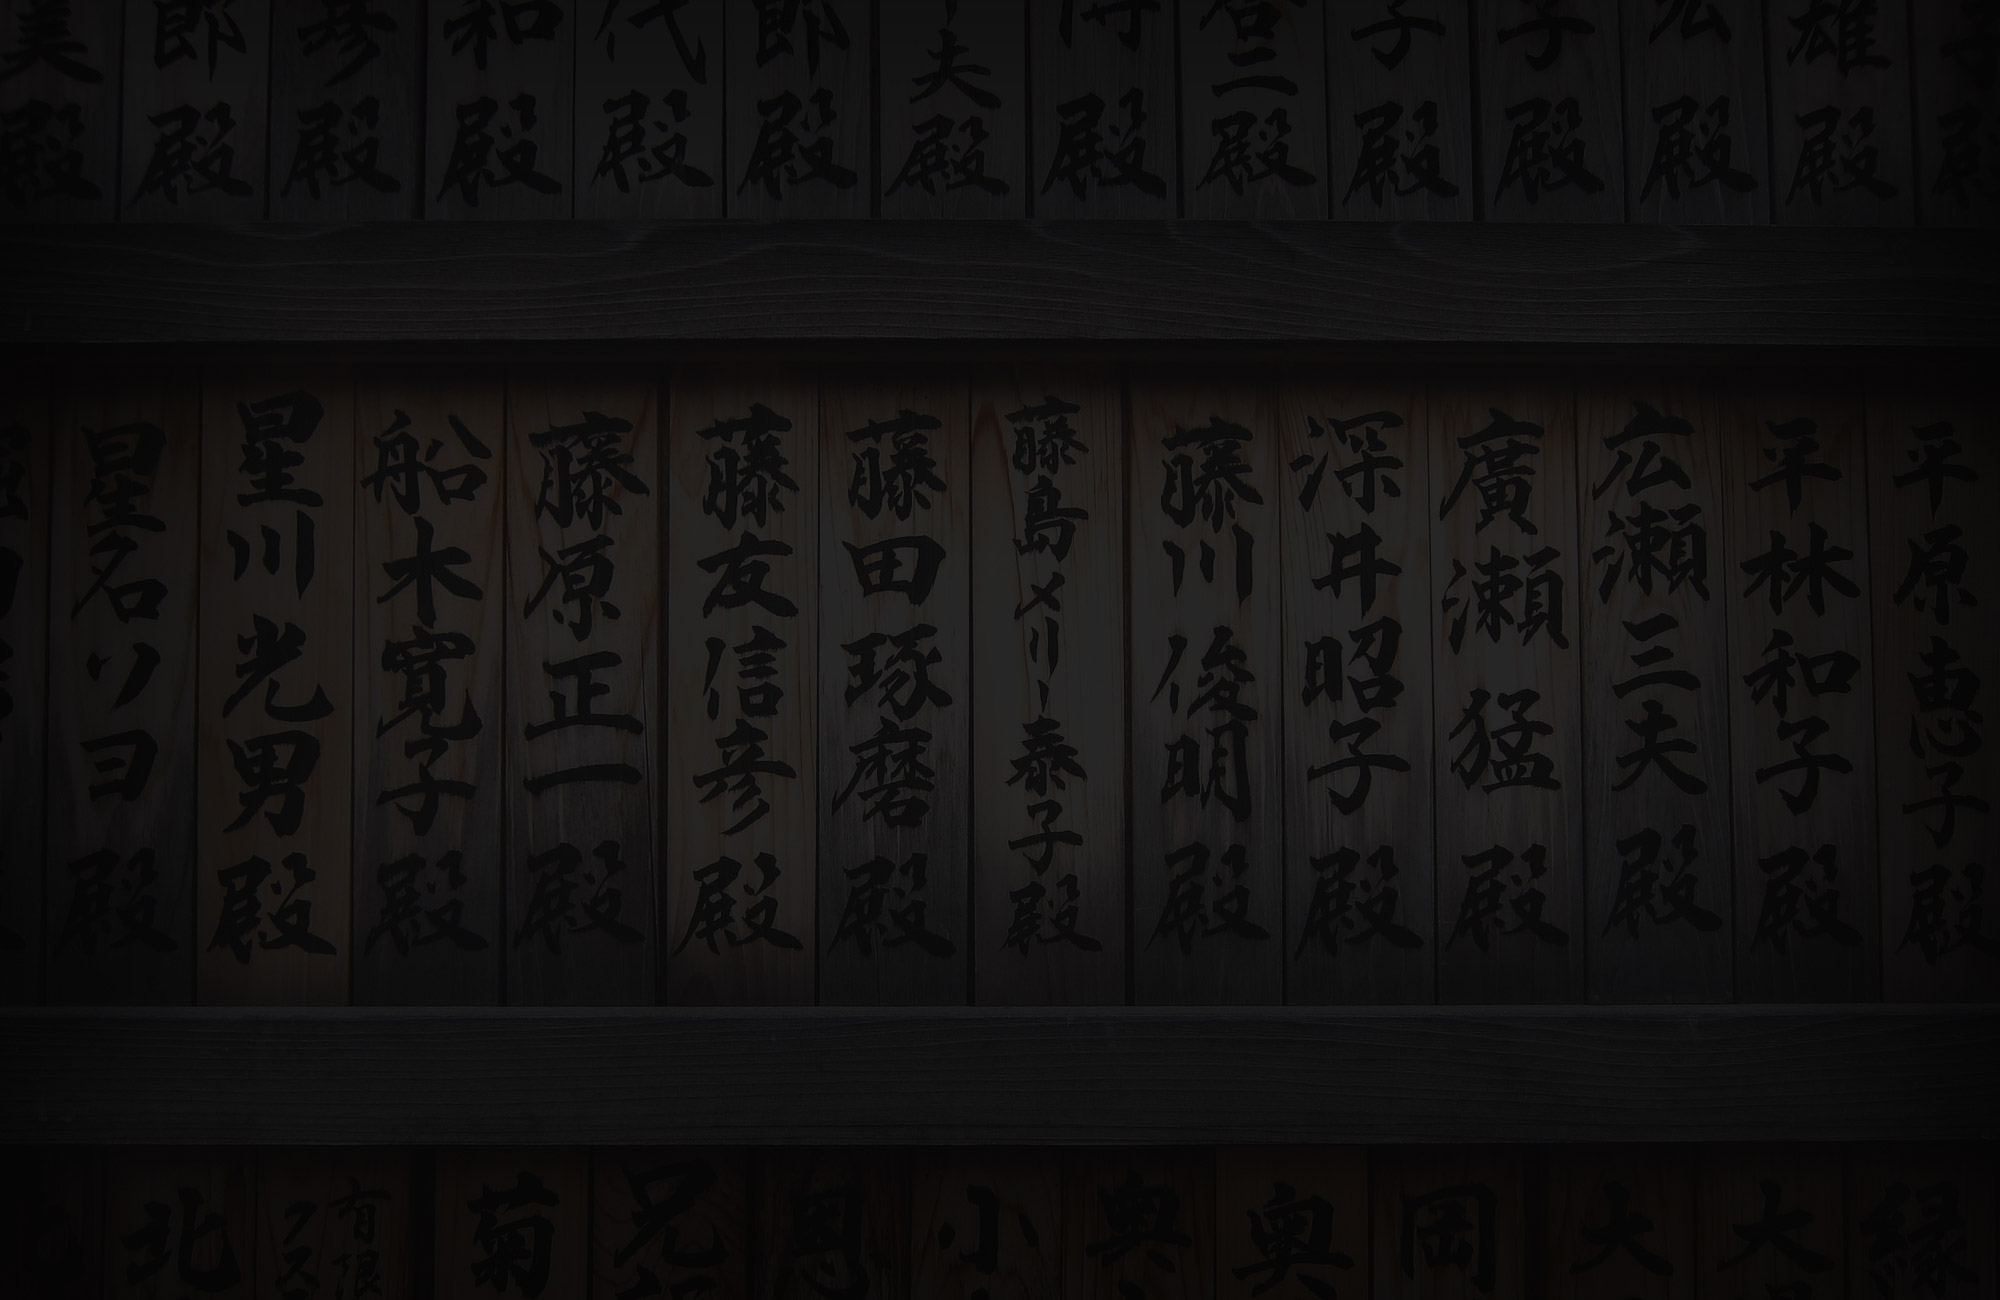 雄殿
宏殿
子殿
子殿
殿
殿
夫殿
郎殿
代殿
和殿
彦殿
郎殿
美殿
平原恵子殿
平林和子殿
広瀬三夫殿
廣瀬猛殿
深井昭子殿
藤川俊明殿
藤島メリー泰子殿
藤田琢磨殿
藤友信彦殿
藤原正一殿
船木寛子殿
星川光男殿
星名ソヨ殿
縁
大
大
岡
奥
奥
小
恩
兄
菊
有限
北